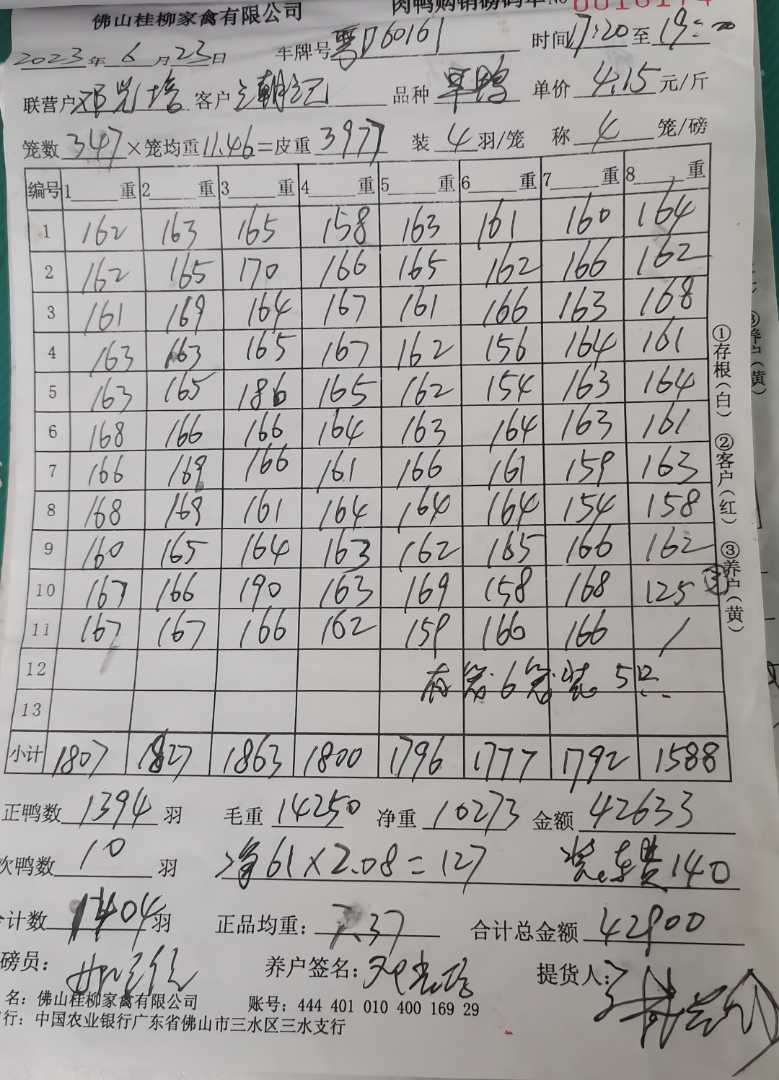 佛山桂柳家禽有限公司 肉鸭购销磅码单No 0016174
2023年6月23日 车牌号 粤D60161 时间17:20至19:00
联营户 邓光培 客户 品种 单价 4.15 元/斤
笼数 347 ×笼均重 11.46 =皮重 3977 装 4 羽/笼 称 4 笼/磅
编号 1 重 2 重 3 重 4 重 5 重 6 重 7 重 8 重
1 162 163 165 158 163 161 160 164
2 162 165 170 166 165 162 166 162
3 161 169 164 167 161 166 163 168
4 163 163 165 167 162 156 164 161
5 163 165 186 165 162 154 163 164
6 168 166 166 164 163 164 163 161
7 166 169 166 161 166 161 159 163
8 168 169 161 164 164 164 154 158
9 160 165 164 163 162 165 166 162
10 167 166 190 163 169 158 168 125
11 167 167 166 162 159 166 166 /
12 有 6 笼装 5只
13
小计 1807 1827 1863 1800 1796 1777 1792 1588
正鸭数 1394 羽 毛重 14250 净重 10273 金额 42633
次鸭数 10 羽 净61×2.08=127 装车费140
合计数 1404 羽 正品均重: 7.37 合计总金额 42900
磅员: 养户签名: 邓光培 提货人:
名: 佛山桂柳家禽有限公司 账号: 444 401 010 400 169 29
行: 中国农业银行广东省佛山市三水区三水支行
①存根(白) ②客户(红) ③养户(黄)